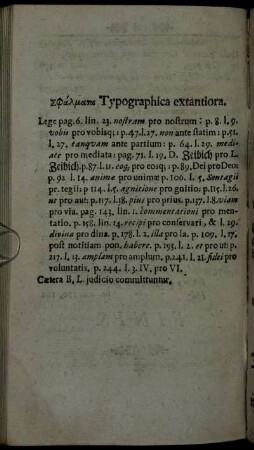 Σφάλματα Typographica extantiora.
Lege pag. 6. lin. 23. nostram pro nostrum: p. 8. l. 9.
vobis pro vobisq; : p. 47. l. 27. non ante statim: p. 51.
l. 27. tanquam ante partium: p. 64. l. 29. medi-
ate pro mediata: pag. 71. l. 19. D. Zeibich pro L.
Zeibich. p. 87. l. 11. eoq; pro eosq; : p. 89. Dei pro Deo:
p. 92 l. 14. animæ pro unimæ p. 106. l. 5. Contagii
pr. tegii: p 114. l. 5. agnitione pro gnitio: p. 115. l. 26.
ut pro aut: p. 117. l. 38. pius pro prius. p. 127. l. 8. viam
pro via. pag. 143, lin. 1. commentationi pro men-
tatio. p. 158. lin. 14. recipi pro conservari, & l. 29.
divina pro dina. p. 178. l. 2. illa pro la. p. 109. l. 17.
post notitiam pon. habere. p. 195. l. 2. et pro ut: p.
217. l. 13. amplam pro amplum, p. 241. l. 21. fidei pro
voluntatis. p. 244. l. 3. IV, pro VI.
Cætera B. L. judicio committuntur.